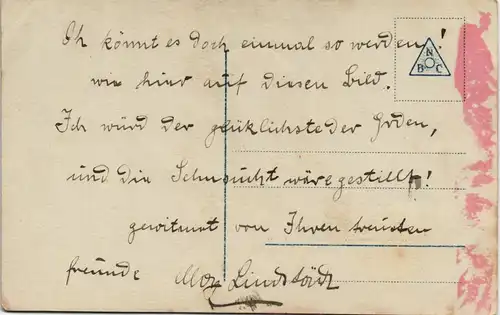 Oh könnt es doch einmal so werden!
wie hier auf diesen Bild.
Ich würd der glüklichste der Erden,
und die Sehnsucht wäre gestillt!
gewitmet von Ihren treusten
freunde Max Lindstädt
N
B C